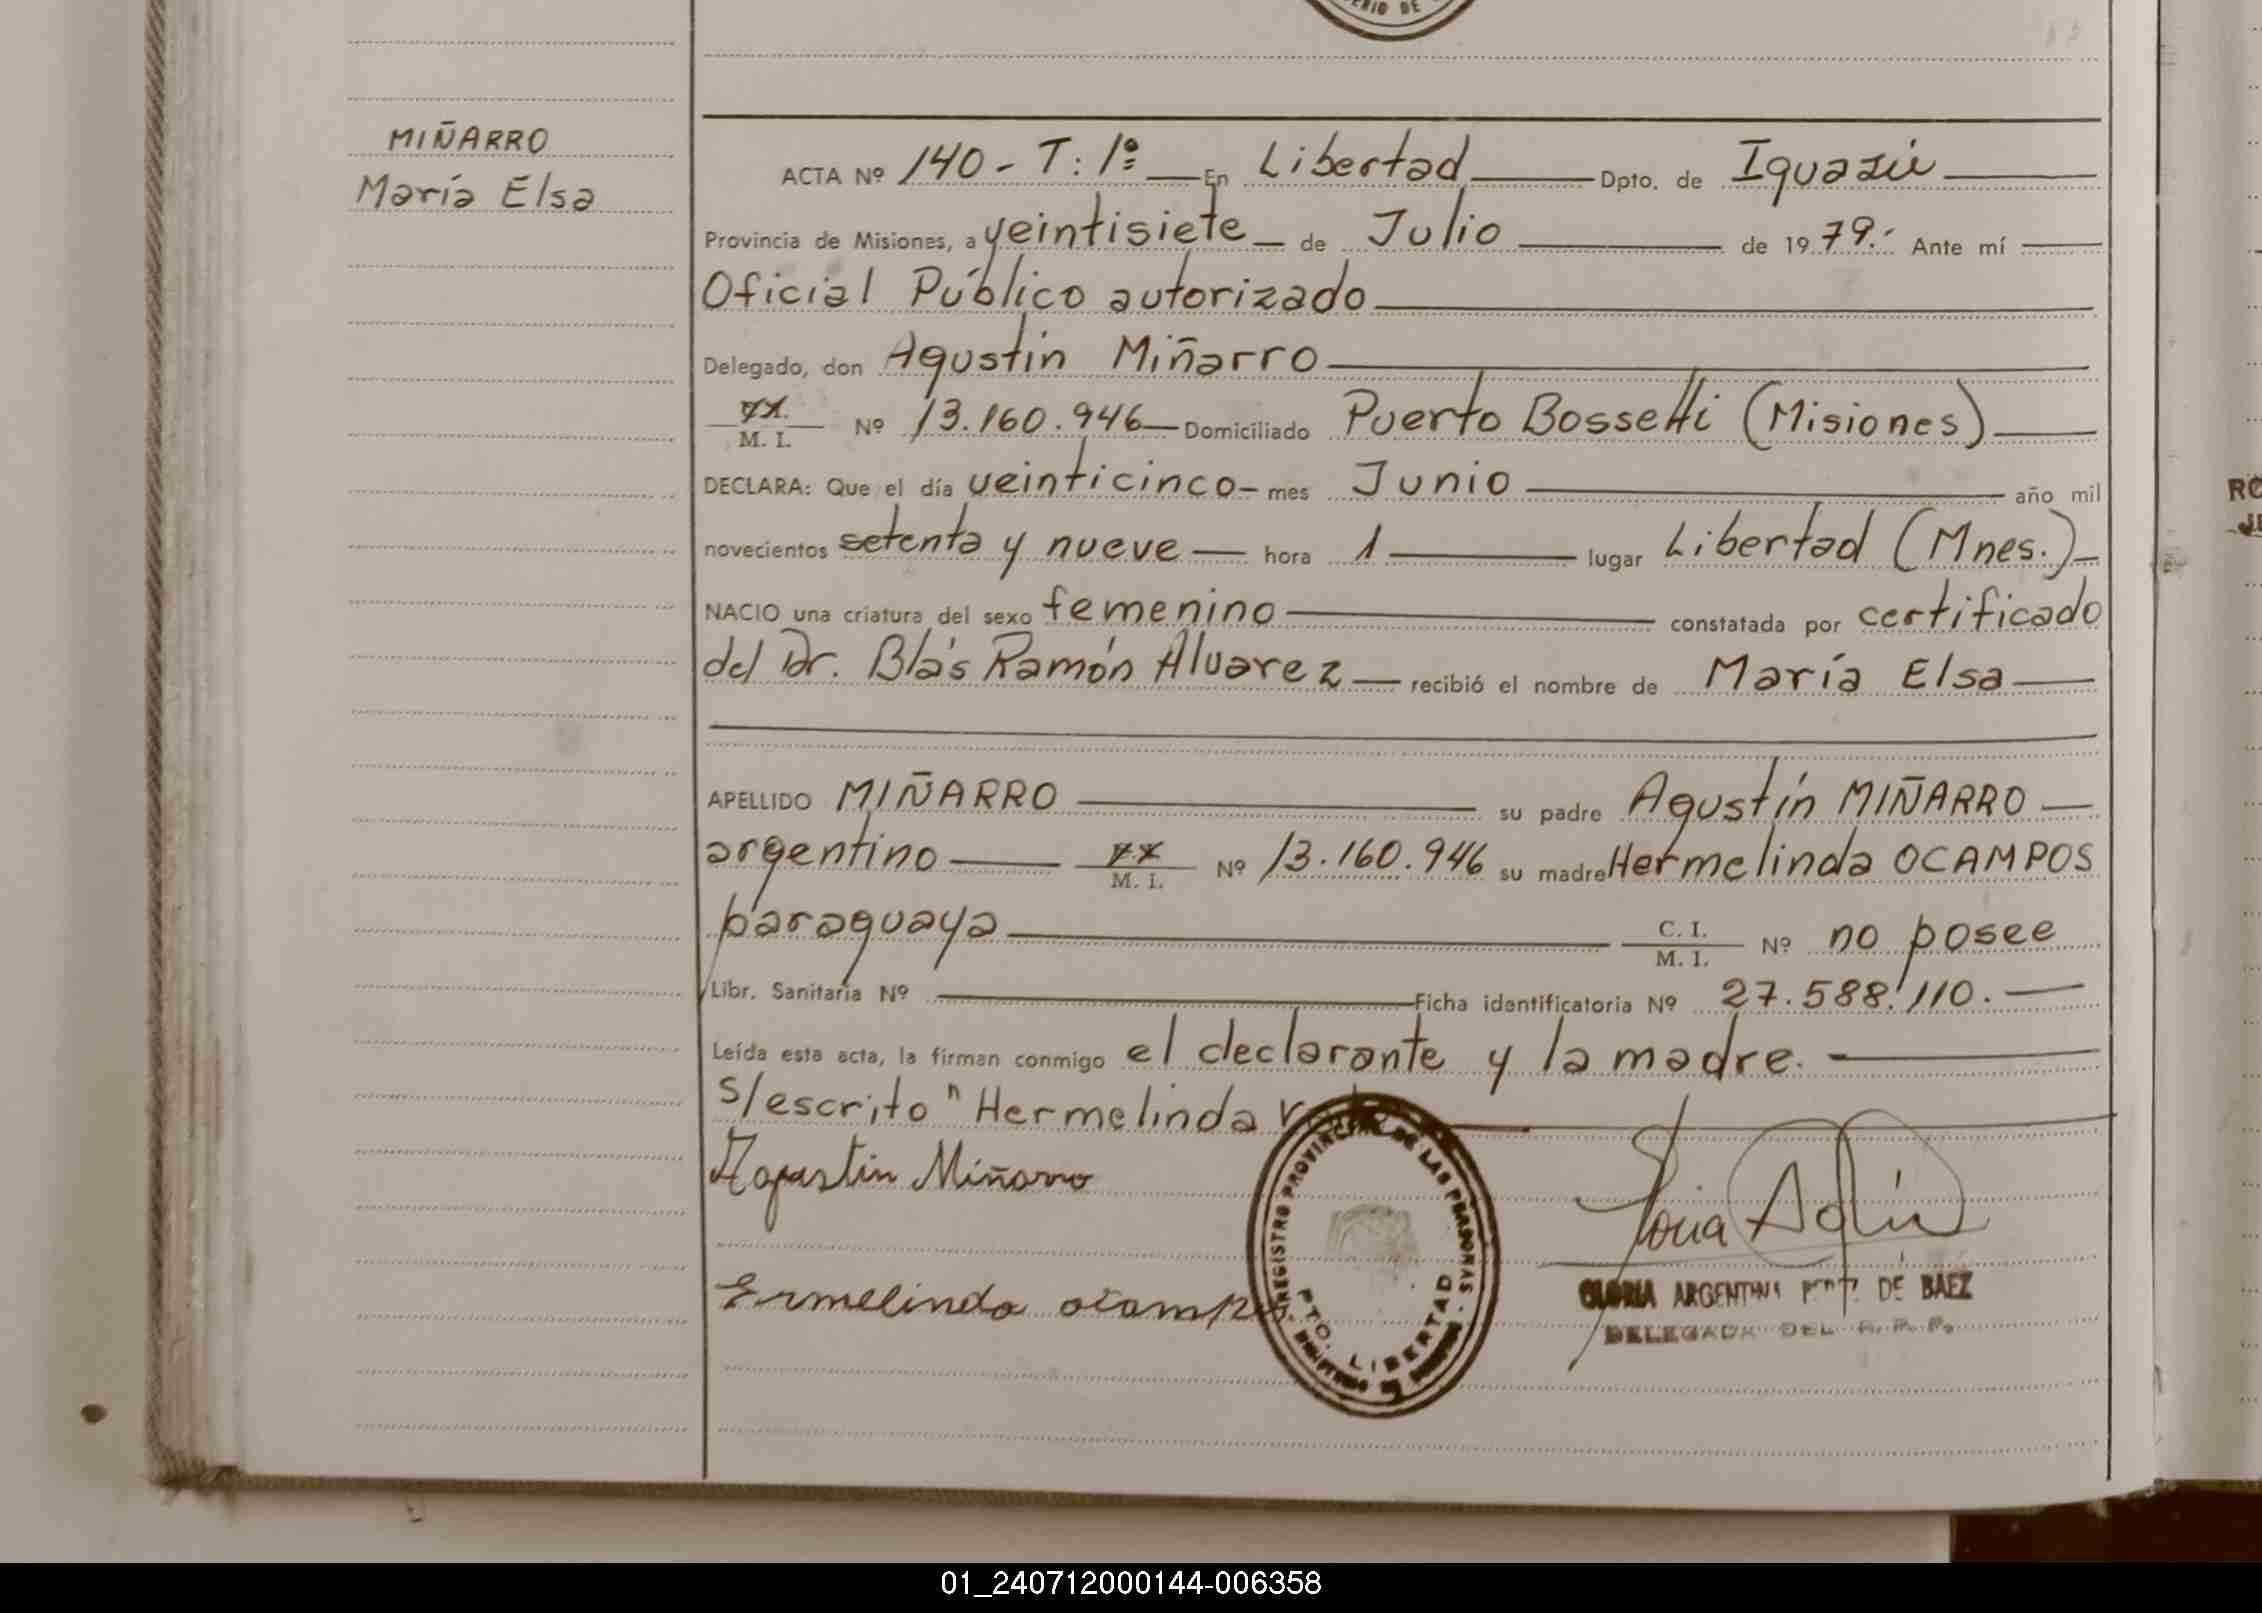 MIÑARRO
María Elsa
ACTA Nº 140 - T: 1º En Libertad Dpto. de Iguazú
Provincia de Misiones, a veintisiete de Julio de 1979.- Ante mí
Oficial Público autorizado
Delegado, don Agustín Miñarro
M. I. Nº 13.160.946 Domiciliado Puerto Bossetti (Misiones)
DECLARA: Que el día veinticinco mes Junio año mil
novecientos setenta y nueve hora 1 lugar Libertad (Mnes.)
NACIO una criatura del sexo femenino constatada por certificado
del Dr. Blás Ramón Alvarez recibió el nombre de María Elsa
APELLIDO MIÑARRO su padre Agustín MIÑARRO
argentino M. I. Nº 13.160.946 su madre Hermelinda OCAMPOS
paraguaya C. I. M. I. Nº no posee
Libr. Sanitaria Nº Ficha identificatoria Nº 27.588.110.
Leída esta acta, la firman conmigo el declarante y la madre.
S/escrito " Hermelinda
Agustin Miñarro
Ermelinda ocampos
REGISTRO PROVINCIAL DE LAS PERSONAS
PTO. LIBERTAD
GLORIA ARGENTINA DE BAEZ
DELEGADA DEL R. P. P.
01_240712000144-006358